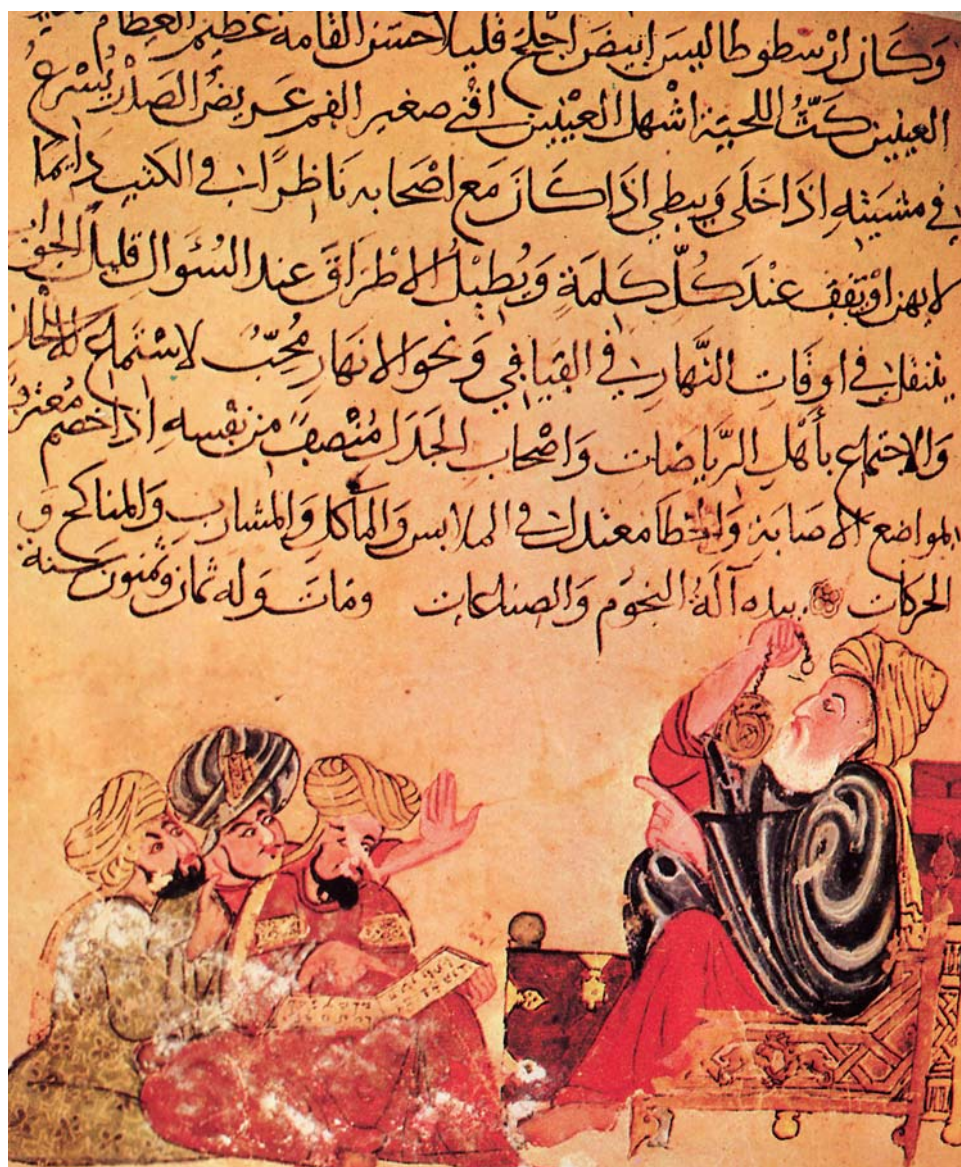 وَكَانَ ارْسطوطاليسَ ابيضَ اجْلحَ قليلا حسَن القامة عَظيم العظام
العينين كَثُّ اللحيَة اشهل العَيْنين اقنى صغير الفم عَريضُ الصَدر يُسْرعُ
في مشيَتهِ اذَا خَلَى وَيبطي اذَا كَانَ مَع اصْحَابه نَاظرًا في الكتب دَايمًا
لا يهذ اوْ يَقف عنْدَ كُلّ كَلمَةٍ وَيُطيْلُ الاطْرَاقَ عند السُؤَال قليل الجوَاب
يتنقل في اوقَاتِ النَّهار في الفيَافي وَنحوَ الانهار مُحبٌّ لاسْتماع الالحان
وَالاجتماع بأهْلِ الرّيَاضات وَاصْحاب الجدَل مُنْصفٌ من نفْسه اذَا خصم معترف
بمواضع الاصَابة وَالخطأ معتدل في الملابس وَالمآكل وَالمشارب وَالمناكح وَ
الحركات بيده آلة النجوم وَالصناعات ومَاتَ وَله ثمان وثمنون سنة